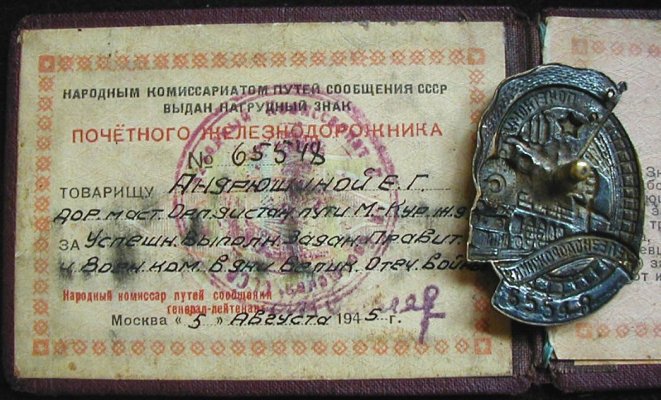 НАРОДНЫМ КОМИССАРИАТОМ ПУТЕЙ СООБЩЕНИЯ СССР
ВЫДАН НАГРУДНЫЙ ЗНАК
ПОЧЁТНОГО ЖЕЛЕЗНОДОРОЖНИКА
№ 65548
ТОВАРИЩУ Андрюшиной Е. Г.
Дор. маст. Орл. дистан. пути М-Кур. ж. д.
ЗА Успешн. Выполн. Задан. Правит.
и Воен. ком. в дни Велик. Отеч. Войны
Народный комиссар путей сообщения
генерал-лейтенант
Москва « 5 » Августа 1945 г.
65548